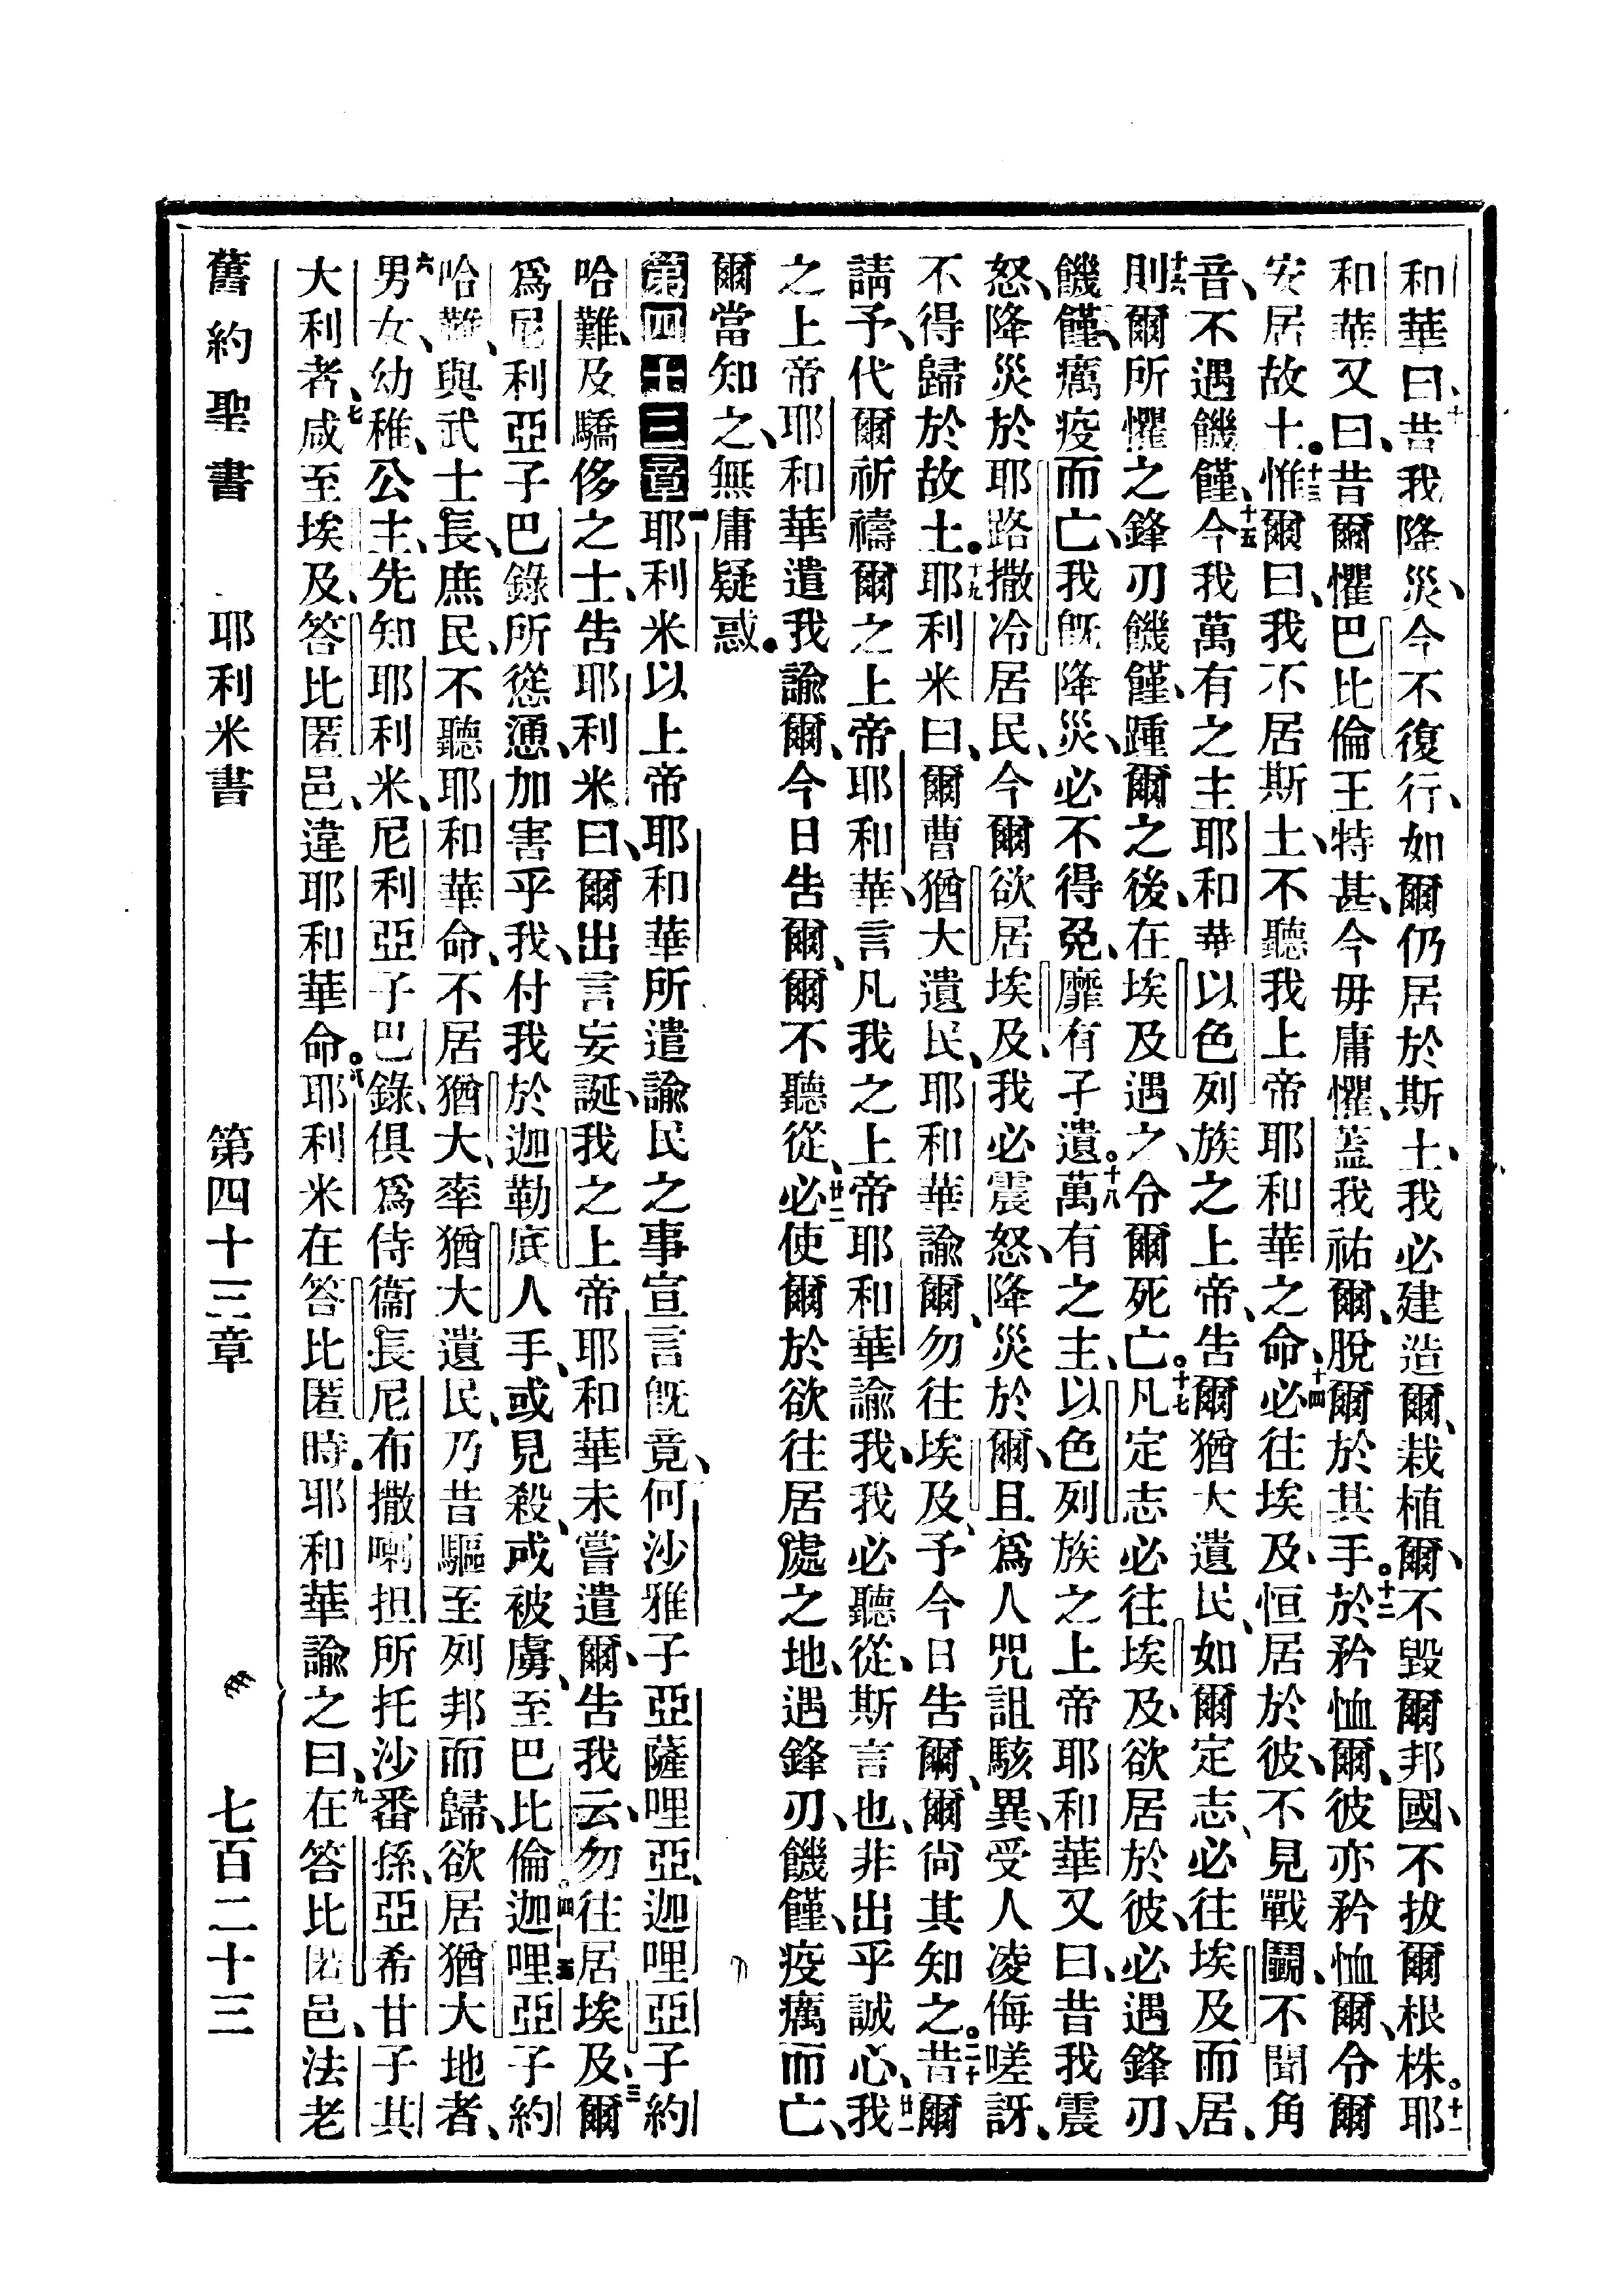 和華曰、十昔我降災、今不復行、如爾仍居於斯土、我必建造爾、栽植爾、不毀爾邦國、不拔爾根株。十一耶
和華又曰、昔爾懼巴比倫王特甚、今毋庸懼、蓋我祐爾、脫爾於其手。十二於矜恤爾、彼亦矜恤爾、令爾
安居故土。十三惟爾曰、我不居斯土、不聽我上帝耶和華之命、十四必往埃及、恒居於彼、不見戰鬭、不聞角
音、不遇饑饉、十五今我萬有之主耶和華以色列族之上帝、告爾猶大遺民、如爾定志、必往埃及而居、
十六則爾所懼之鋒刃饑饉、踵爾之後、在埃及遇之、令爾死亡。十七凡定志必往埃及、欲居於彼、必遇鋒刃、
饑饉、癘疫而亡、我旣降災、必不得免、靡有孑遺。十八萬有之主、以色列族之上帝耶和華又曰、昔我震
怒、降災於耶路撒冷居民、今爾欲居埃及、我必震怒、降災於爾、且爲人咒詛駭異、受人凌侮嗟訝、
不得歸於故土。十九耶利米曰、爾曹猶大遺民、耶和華諭爾、勿往埃及、予今日告爾、爾尙其知之。二十昔爾
請予、代爾祈禱爾之上帝耶和華、言凡我之上帝耶和華諭我、我必聽從、斯言也、非出乎誠心、廿一我
之上帝耶和華遣我諭爾、今日告爾、爾不聽從、廿二必使爾於欲往居處之地、遇鋒刃、饑饉、疫癘而亡、
爾當知之、無庸疑惑。
第四十三章一耶利米以上帝耶和華所遣諭民之事宣言旣竟、何沙雅子亞薩哩亞、迦哩亞子約
哈難、及驕侈之士、告耶利米曰、爾出言妄誕、我之上帝耶和華未嘗遣爾、告我云、勿往居埃及、三爾
爲尼利亞子巴錄所慫慂、加害乎我、付我於迦勒底人手、或見殺、或被虜、至巴比倫。四五迦哩亞子約
六哈難、與武士長、庶民、不聽耶和華命、不居猶大、率猶大遺民、乃昔驅至列邦而歸、欲居猶大地者、
男女幼稚、公主、先知耶利米、尼利亞子巴錄、俱爲侍衞長尼布撒喇担所托沙番孫、亞希甘子其
大利者、七咸至埃及、答比匿邑、違耶和華命。八耶利米在答比匿時、耶和華諭之曰、九在答比匿邑、法老
舊約聖書 耶利米書 第四十三章 七百二十三